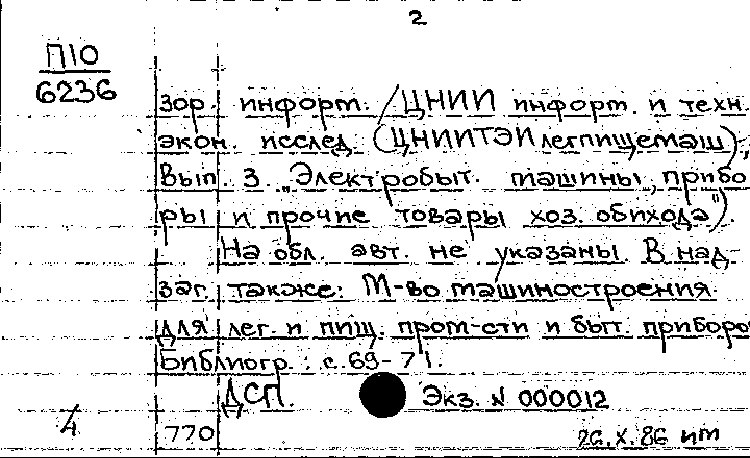 2
П10
6236
зор. информ. /ЦНИИ информ. и техн.
экон. исслед. (ЦНИИТЭИлегпищемаш),
Вып. 3 „Электробыт. машины, прибо
ры и прочие товары хоз. обихода").
На обл. авт. не указаны. В над-
заг. также: М-во машиностроения
для лег. и пищ. пром-сти и быт. приборо
Библиогр.: с. 69-71.
ДСП. Экз. N 000012
4
770
26.X.86 пт